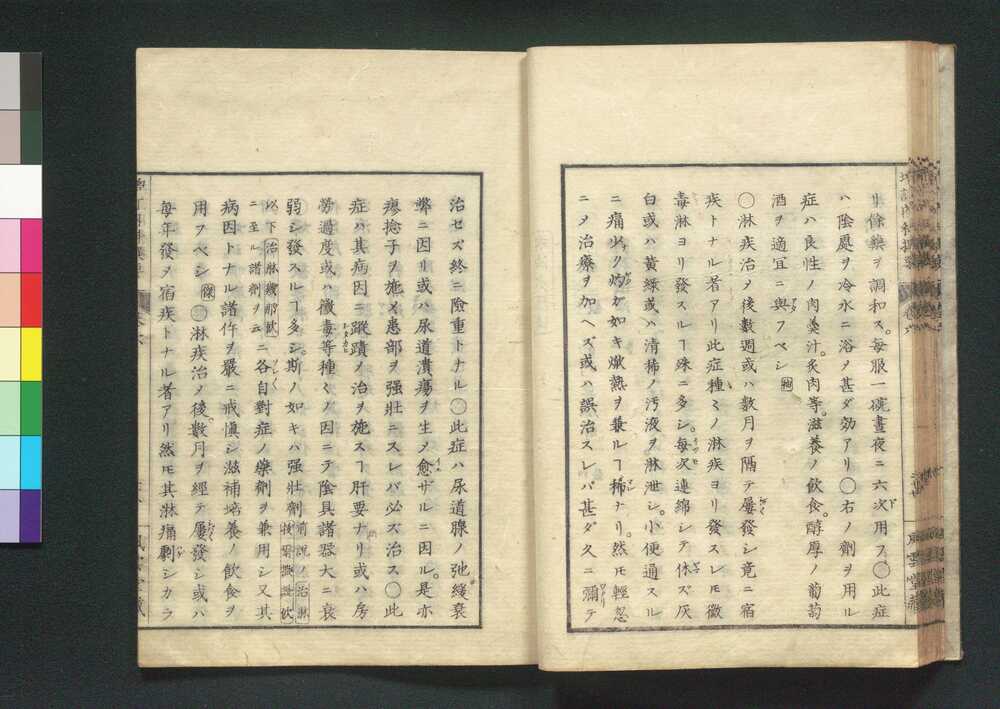 リ像藥ヲ調和ス。毎服一碗晝夜ニ六次用フ。〇此症
ハ陰處ヲ冷水ニ浴〆甚ダ効アリ〇右ノ劑ヲ用ル
症ハ良性ノ肉羹汁。炙肉等。滋養ノ飲食。醇厚ノ葡萄
酒ヲ適宜ニ與フベシ
〇淋疾治〆後數週或ハ數月ヲ隔テ屢發シ竟ニ宿
疾トナル者アリ此症種々ノ淋疾ヨリ發スレ𪜈黴
毒淋ヨリ發スルヿ殊ニ多シ。毎次連綿シテ休ズ灰
白或ハ黄緑或ハ清稀ノ汚液ヲ淋泄シ。小便通スル
ニ痛ミ灼ガ如キ燉熱ヲ兼ルヿ稀ナリ。然𪜈輕忽
ニ〆治療ヲ加ヘズ或ハ誤治スレバ甚ダ久ニ彌テ
治セズ終ニ險重トナル〇此症ハ尿道腺ノ弛緩衰
弊ニ因リ或ハ尿道潰瘍ヲ生〆愈ザルニ因ル。是亦
瘳捻子ヲ施〆患部ヲ强壮ニスレバ必ズ治ス〇此
症ハ其病因ニ蹤蹟〆治ヲ施スヿ肝要ナリ或ハ房
勞過度或ハ黴毒等種々ノ因ニテ陰具諸器大ニ衰
弱シ發スルヿ多シ。斯ノ如キハ强壮劑前説ノ治淋
以下治淋幾那飲
ニ至ル諸劑ヲ云ニ各自對症ノ藥劑ヲ兼用シ又其
病因トナル諸件ヲ嚴ニ戒愼シ滋補培養ノ飲食ヲ
用フベシ〇淋疾治〆後數月ヲ經テ屢發シ或ハ
毎年發〆宿疾トナル者アリ然𪜈其淋痛劇シカラ